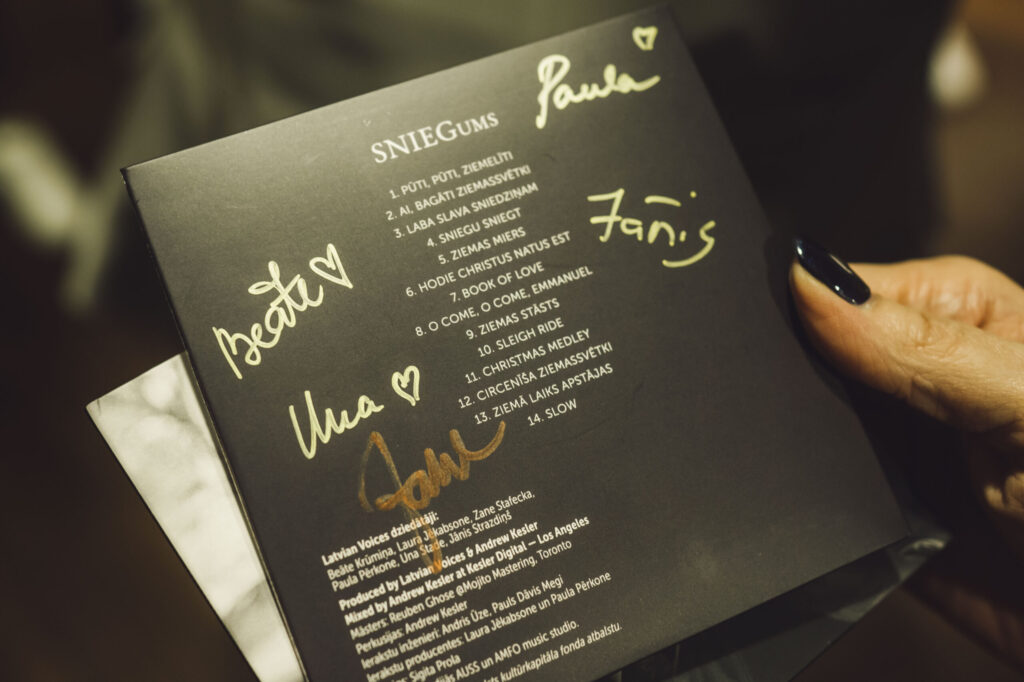 Paula
SNIEGUMS
1. PŪTI, PŪTI, ZIEMELĪTI
2. AI, BAGĀTI ZIEMASSVĒTKI
3. LABA SLAVA SNIEDZIŅAM
4. SNIEGU SNIEGT
5. ZIEMAS MIERS
6. HODIE CHRISTUS NATUS EST
7. BOOK OF LOVE
8. O COME, O COME, EMMANUEL
9. ZIEMAS STĀSTS
10. SLEIGH RIDE
11. CHRISTMAS MEDLEY
12. CIRCENĪŠA ZIEMASSVĒTKI
13. ZIEMĀ LAIKS APSTĀJAS
14. SLOW
Jānis
Beāte
Una
Latvian Voices dziedātāji:
Beāte Krūmiņa, Laura Jēkabsone, Zane Stafecka,
Paula Pērkone, Una Stade, Jānis Strazdiņš
Produced by Latvian Voices & Andrew Kesler
Mixed by Andrew Kesler at Kesler Digital — Los Angeles
Māsters: Reuben Ghose @Mojito Mastering, Toronto
Perkusijas: Andrew Kesler
Ierakstu inženieri: Andris Ūze, Pauls Dāvis Megi
Ierakstu producentes: Laura Jēkabsone un Paula Pērkone
Sigita Prola
AUSS un AMFO music studio.
kultūrkapitāla fonda atbalstu.